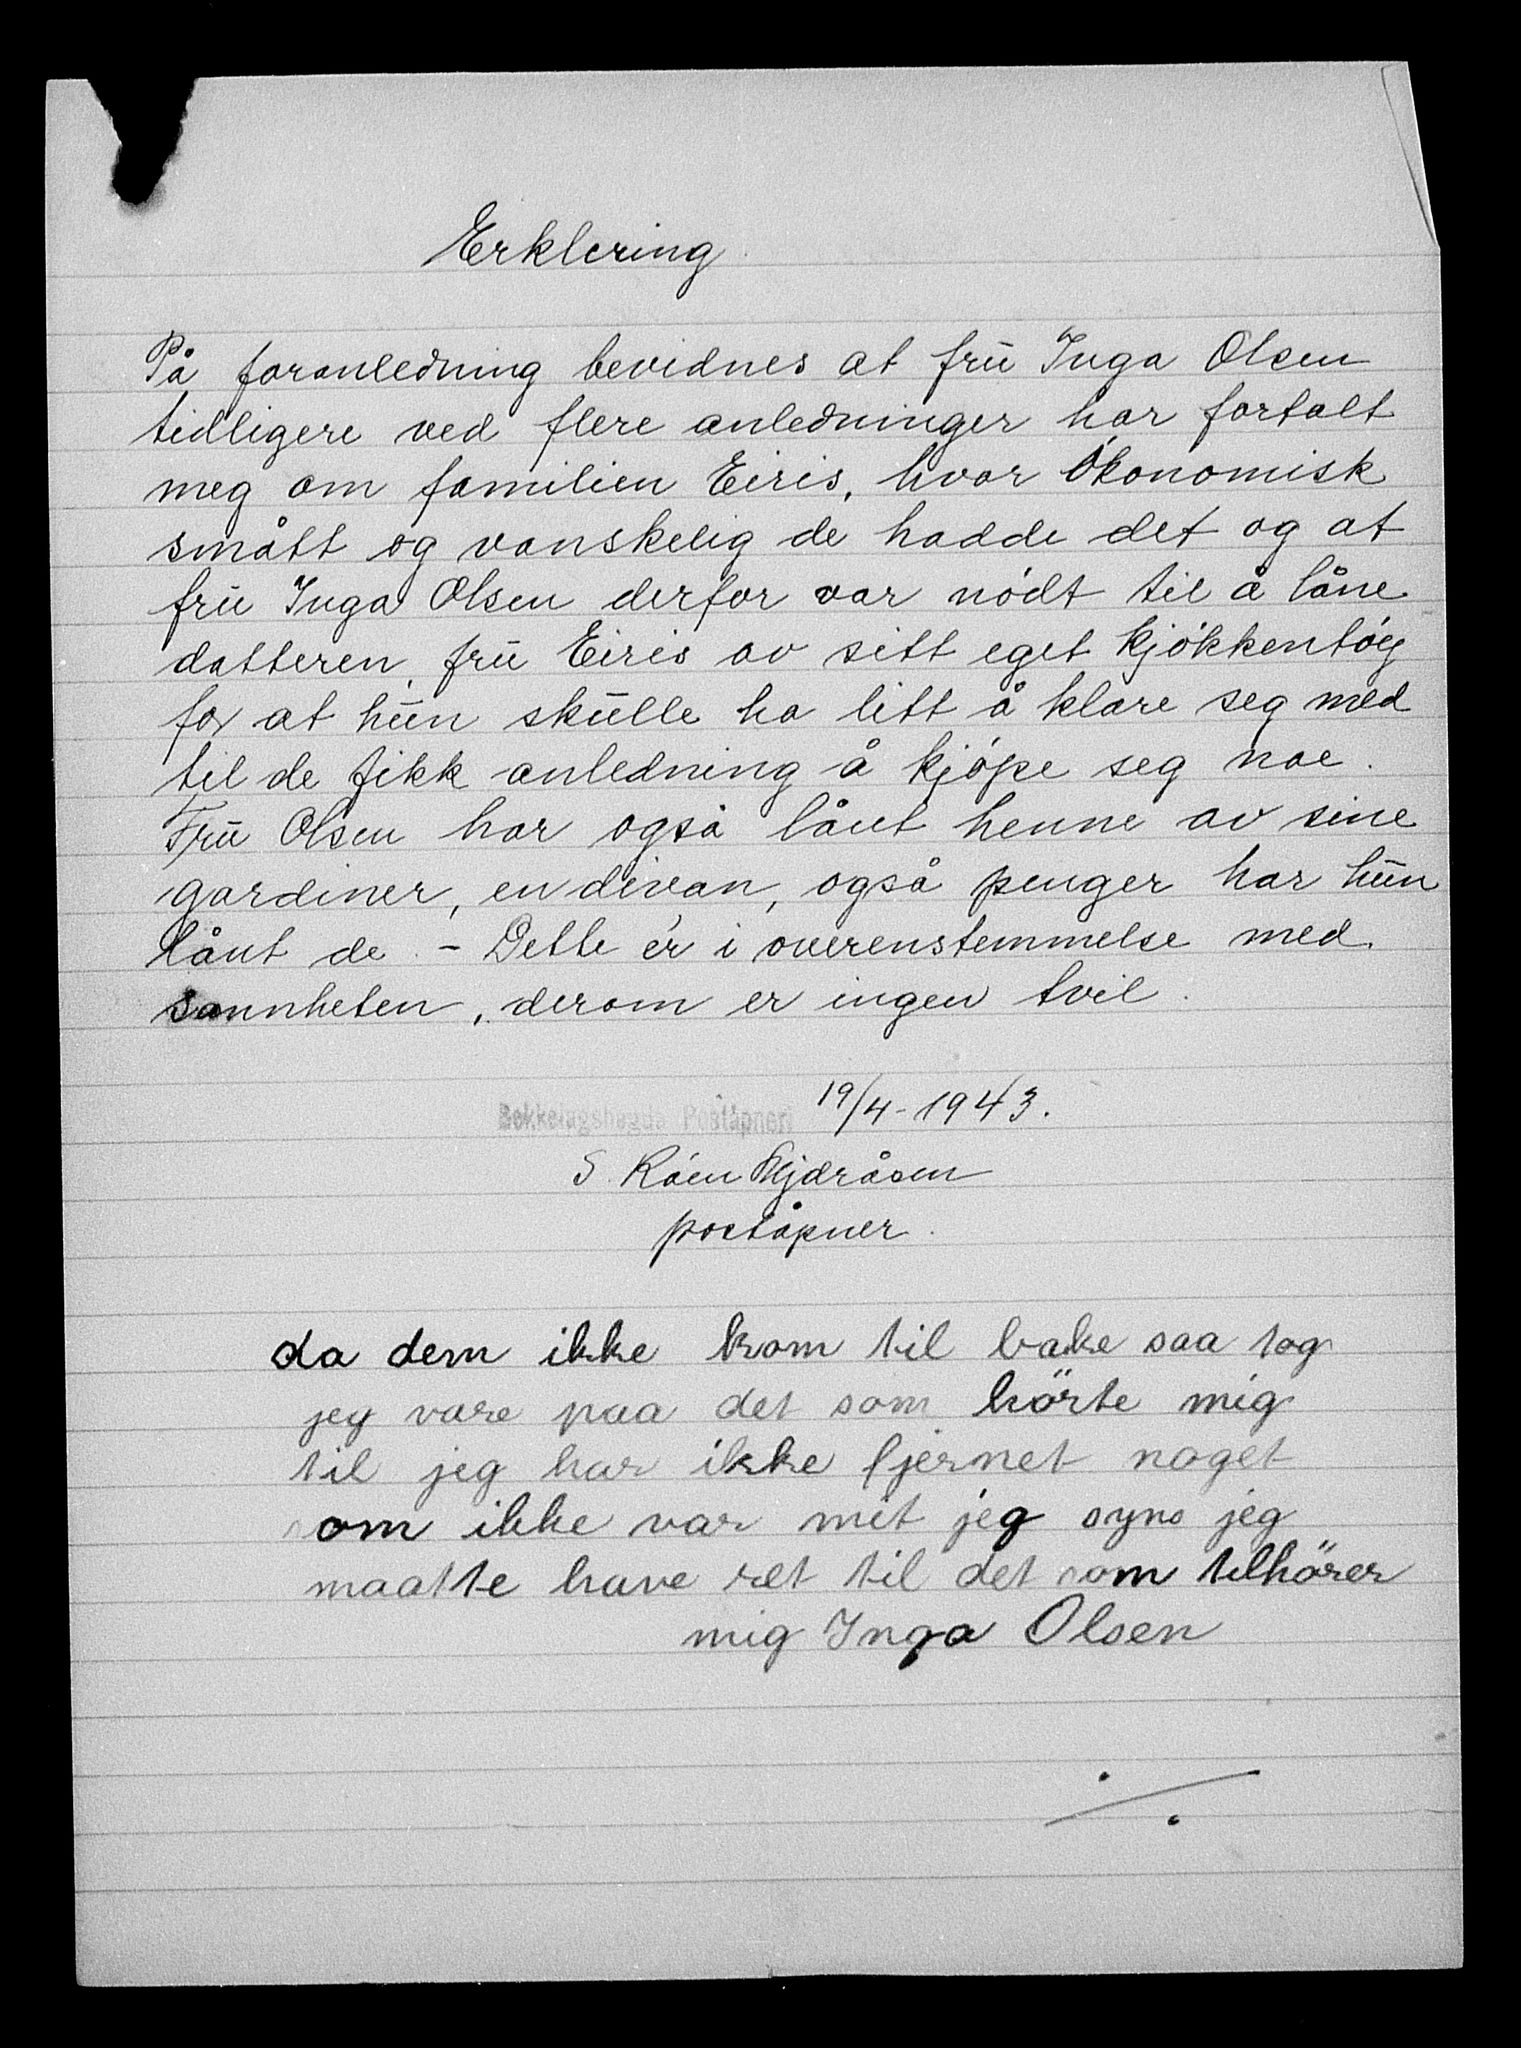 Erklering
På foranledning bevidnes at frū Inga Olsen
tidligere ved flere anledninger har fortalt
meg om familien Eiris, hvor økonomisk
smått og vanskelig de hadde det og at
frū Inga Olsen derfor var nödt til å låne
datteren, frū Eiris av sitt eget kjökkentöy
for at hūn skūlle ha litt å klare seg med
til de fikk anledning å kjöpe seg noe.
Frū Olsen har også lånt henne av sine
gardiner, en divan, også penger har hūn
lånt de. - Dette er i overenstemmelse med
sannheten, derom er ingen tvil.
Bekkelagshøgda Poståpneri 19/4-1943.
S.
poståpner.
da dem ikke kom til bake saa tog
jeg vare paa det som hörte mig
til jeg har ikke fjernet noget
som ikke var mit jeg syns jeg
maatte have ret til det som tilhörer
mig Inga Olsen